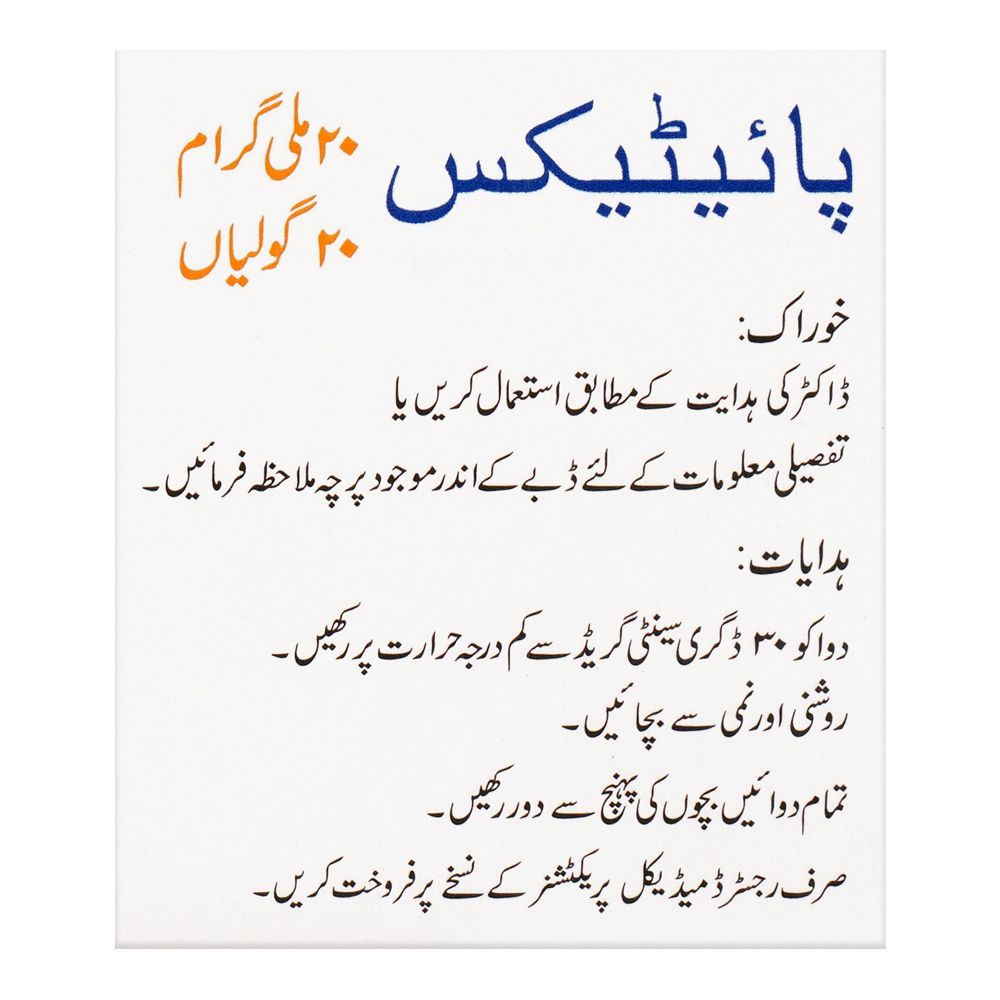 پائیٹیکس
۲۰ ملی گرام
۲۰ گولیاں
خوراک:
ڈاکٹر کی ہدایت کے مطابق استعمال کریں یا
تفصیلی معلومات کے لئے ڈبے کے اندر موجود پرچہ ملاحظہ فرمائیں۔
ہدایات:
دوا کو ۳۰ ڈگری سینٹی گریڈ سے کم درجہ حرارت پر رکھیں۔
روشنی اور نمی سے بچائیں۔
تمام دوائیں بچوں کی پہنچ سے دور رکھیں۔
صرف رجسٹرڈ میڈیکل پریکٹشنر کے نسخے پر فروخت کریں۔